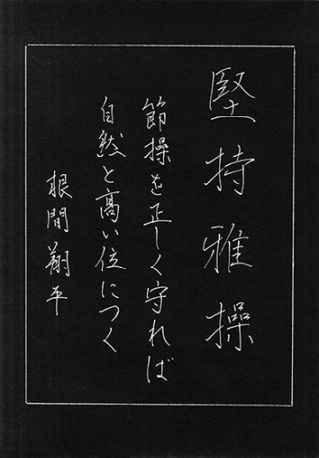 堅持雅操
節操を正しく守れば
自然と高い位につく
根間翔平